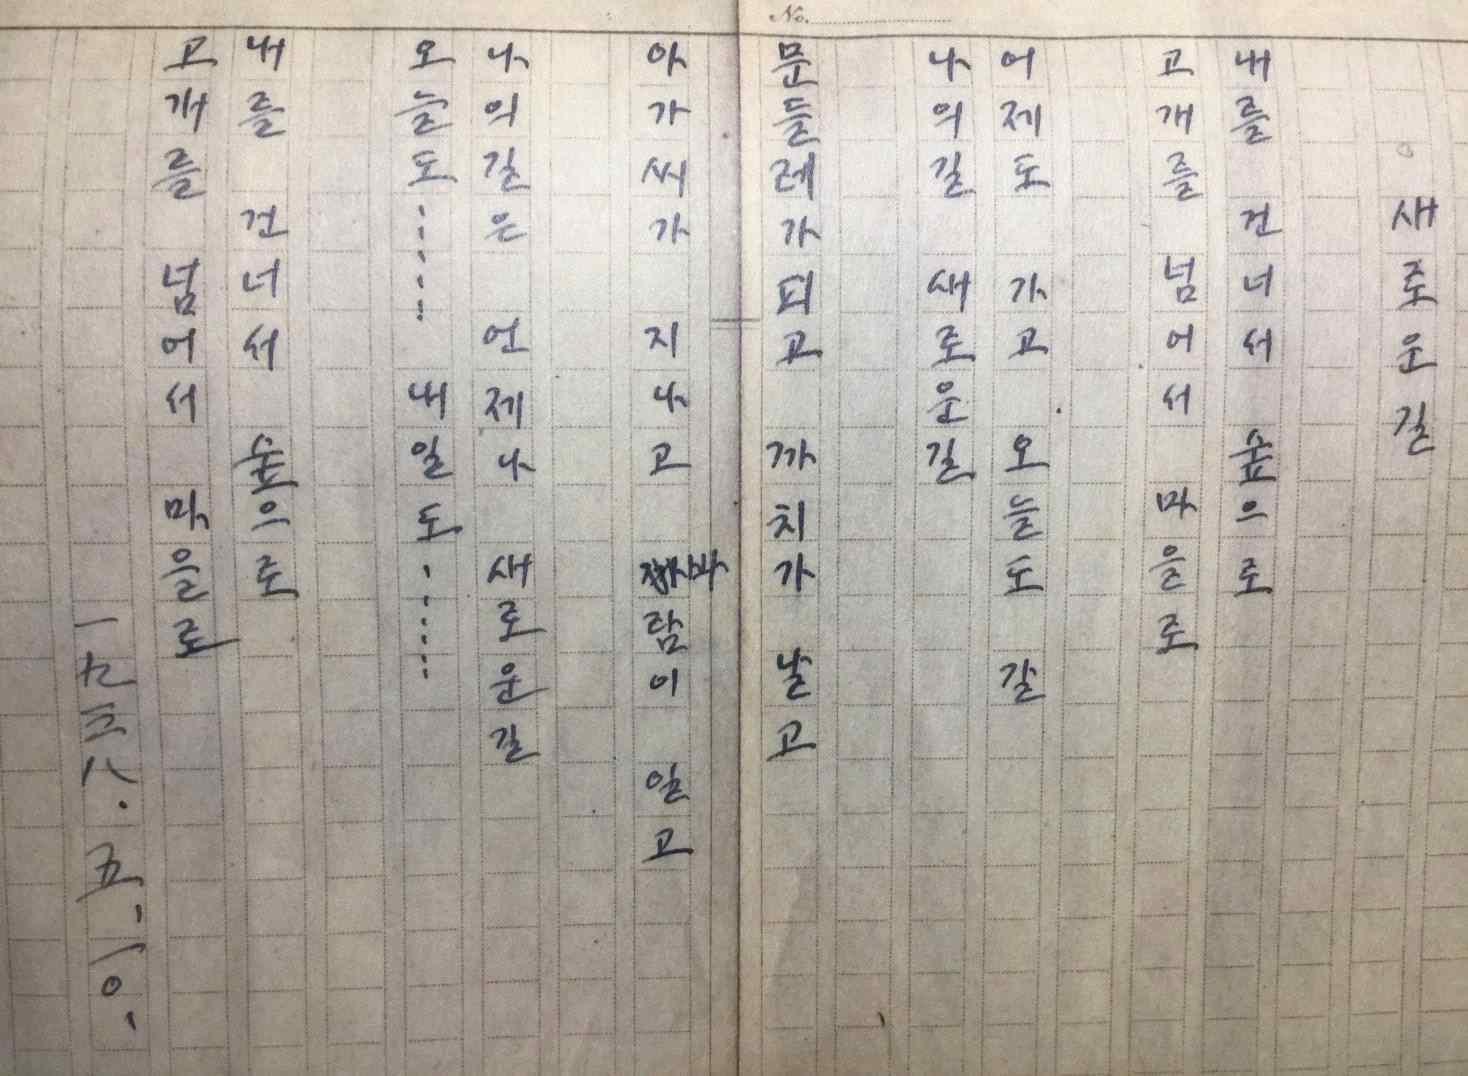 No.
새로운길
내를 건너서 숲으로
고개를 넘어서 마을로
어제도 가고 오늘도 갈
나의길 새로운길
문들레가 피고 까치가 날고
아가씨가 지나고 바람이 일고
나의길은 언제나 새로운길
오늘도…… 내일도……
내를 건너서 숲으로
고개를 넘어서 마을로
一九三八.五.一○.